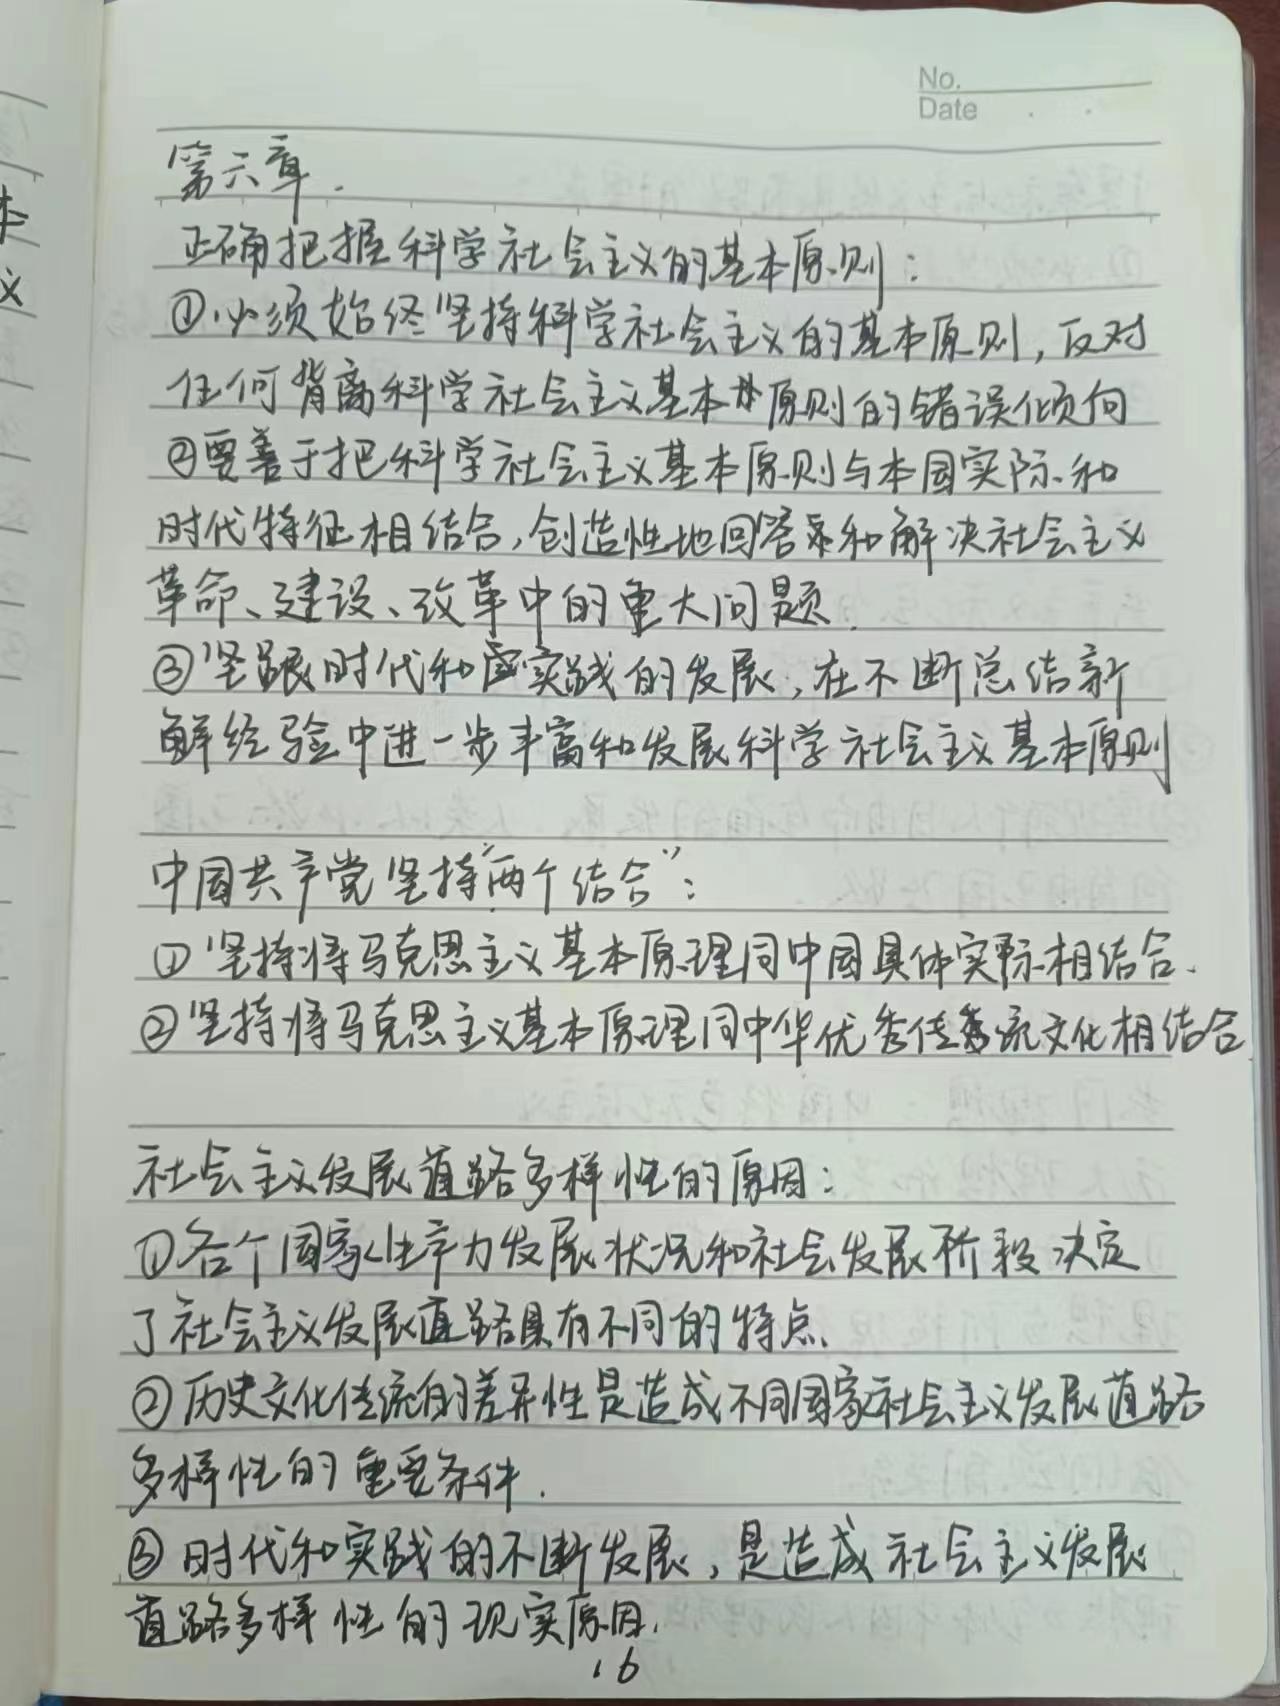 No.
Date
第六章.
正确把握科学社会主义的基本原则：
①必须始终坚持科学社会主义的基本原则，反对
任何背离科学社会主义基本原则的错误倾向
②要善于把科学社会主义基本原则与本国实际和
时代特征相结合，创造性地回答和解决社会主义
革命、建设、改革中的重大问题.
③坚跟时代和实践的发展，在不断总结新
鲜经验中进一步丰富和发展科学社会主义基本原则
中国共产党坚持“两个结合”：
①坚持将马克思主义基本原理同中国具体实际相结合.
②坚持将马克思主义基本原理同中华优秀传统文化相结合
社会主义发展道路多样性的原因：
①各个国家生产力发展状况和社会发展阶段决定
了社会主义发展道路具有不同的特点.
②历史文化传统的差异性是造成不同国家社会主义发展道路
多样性的重要条件.
③时代和实践的不断发展，是造成社会主义发展
道路多样性的现实原因.
16
本
义